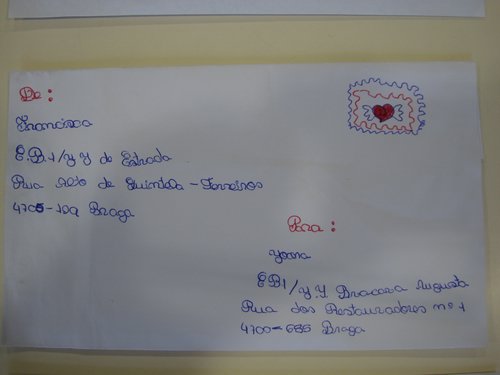 De :
Francisca
E.B.1/J.I de Estrada
Rua Alto de Quintela - Ferreiros
4705-109 Braga
Para :
Joana
EB1/J.I. Bracara Augusta
Rua dos Restauradores nº 1
4700-686 Braga